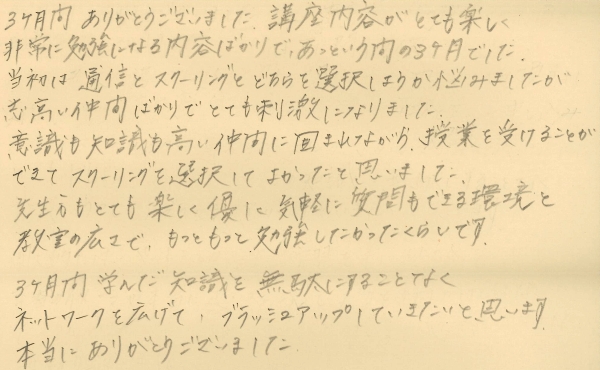 3ヶ月間 ありがとうございました。講座内容がとても楽しく
非常に勉強になる内容ばかりで、あっという間の3ヶ月でした。
当初は 通信と スクーリングと どちらを選択しようか悩みましたが
志高い仲間ばかりでとても刺激になりました。
意識も知識も高い仲間に囲まれながら、授業を受けることが
できて スクーリングを選択して よかったと 思いました。
先生方もとても 楽しく 優しく 気軽に 質問もできる環境と
教室の広さで、もっともっと 勉強したかったくらいです。
3ヶ月間 学んだ 知識を 無駄にすることなく
ネットワークを広げて、ブラッシュアップしていきたいと思います。
本当に ありがとうございました。